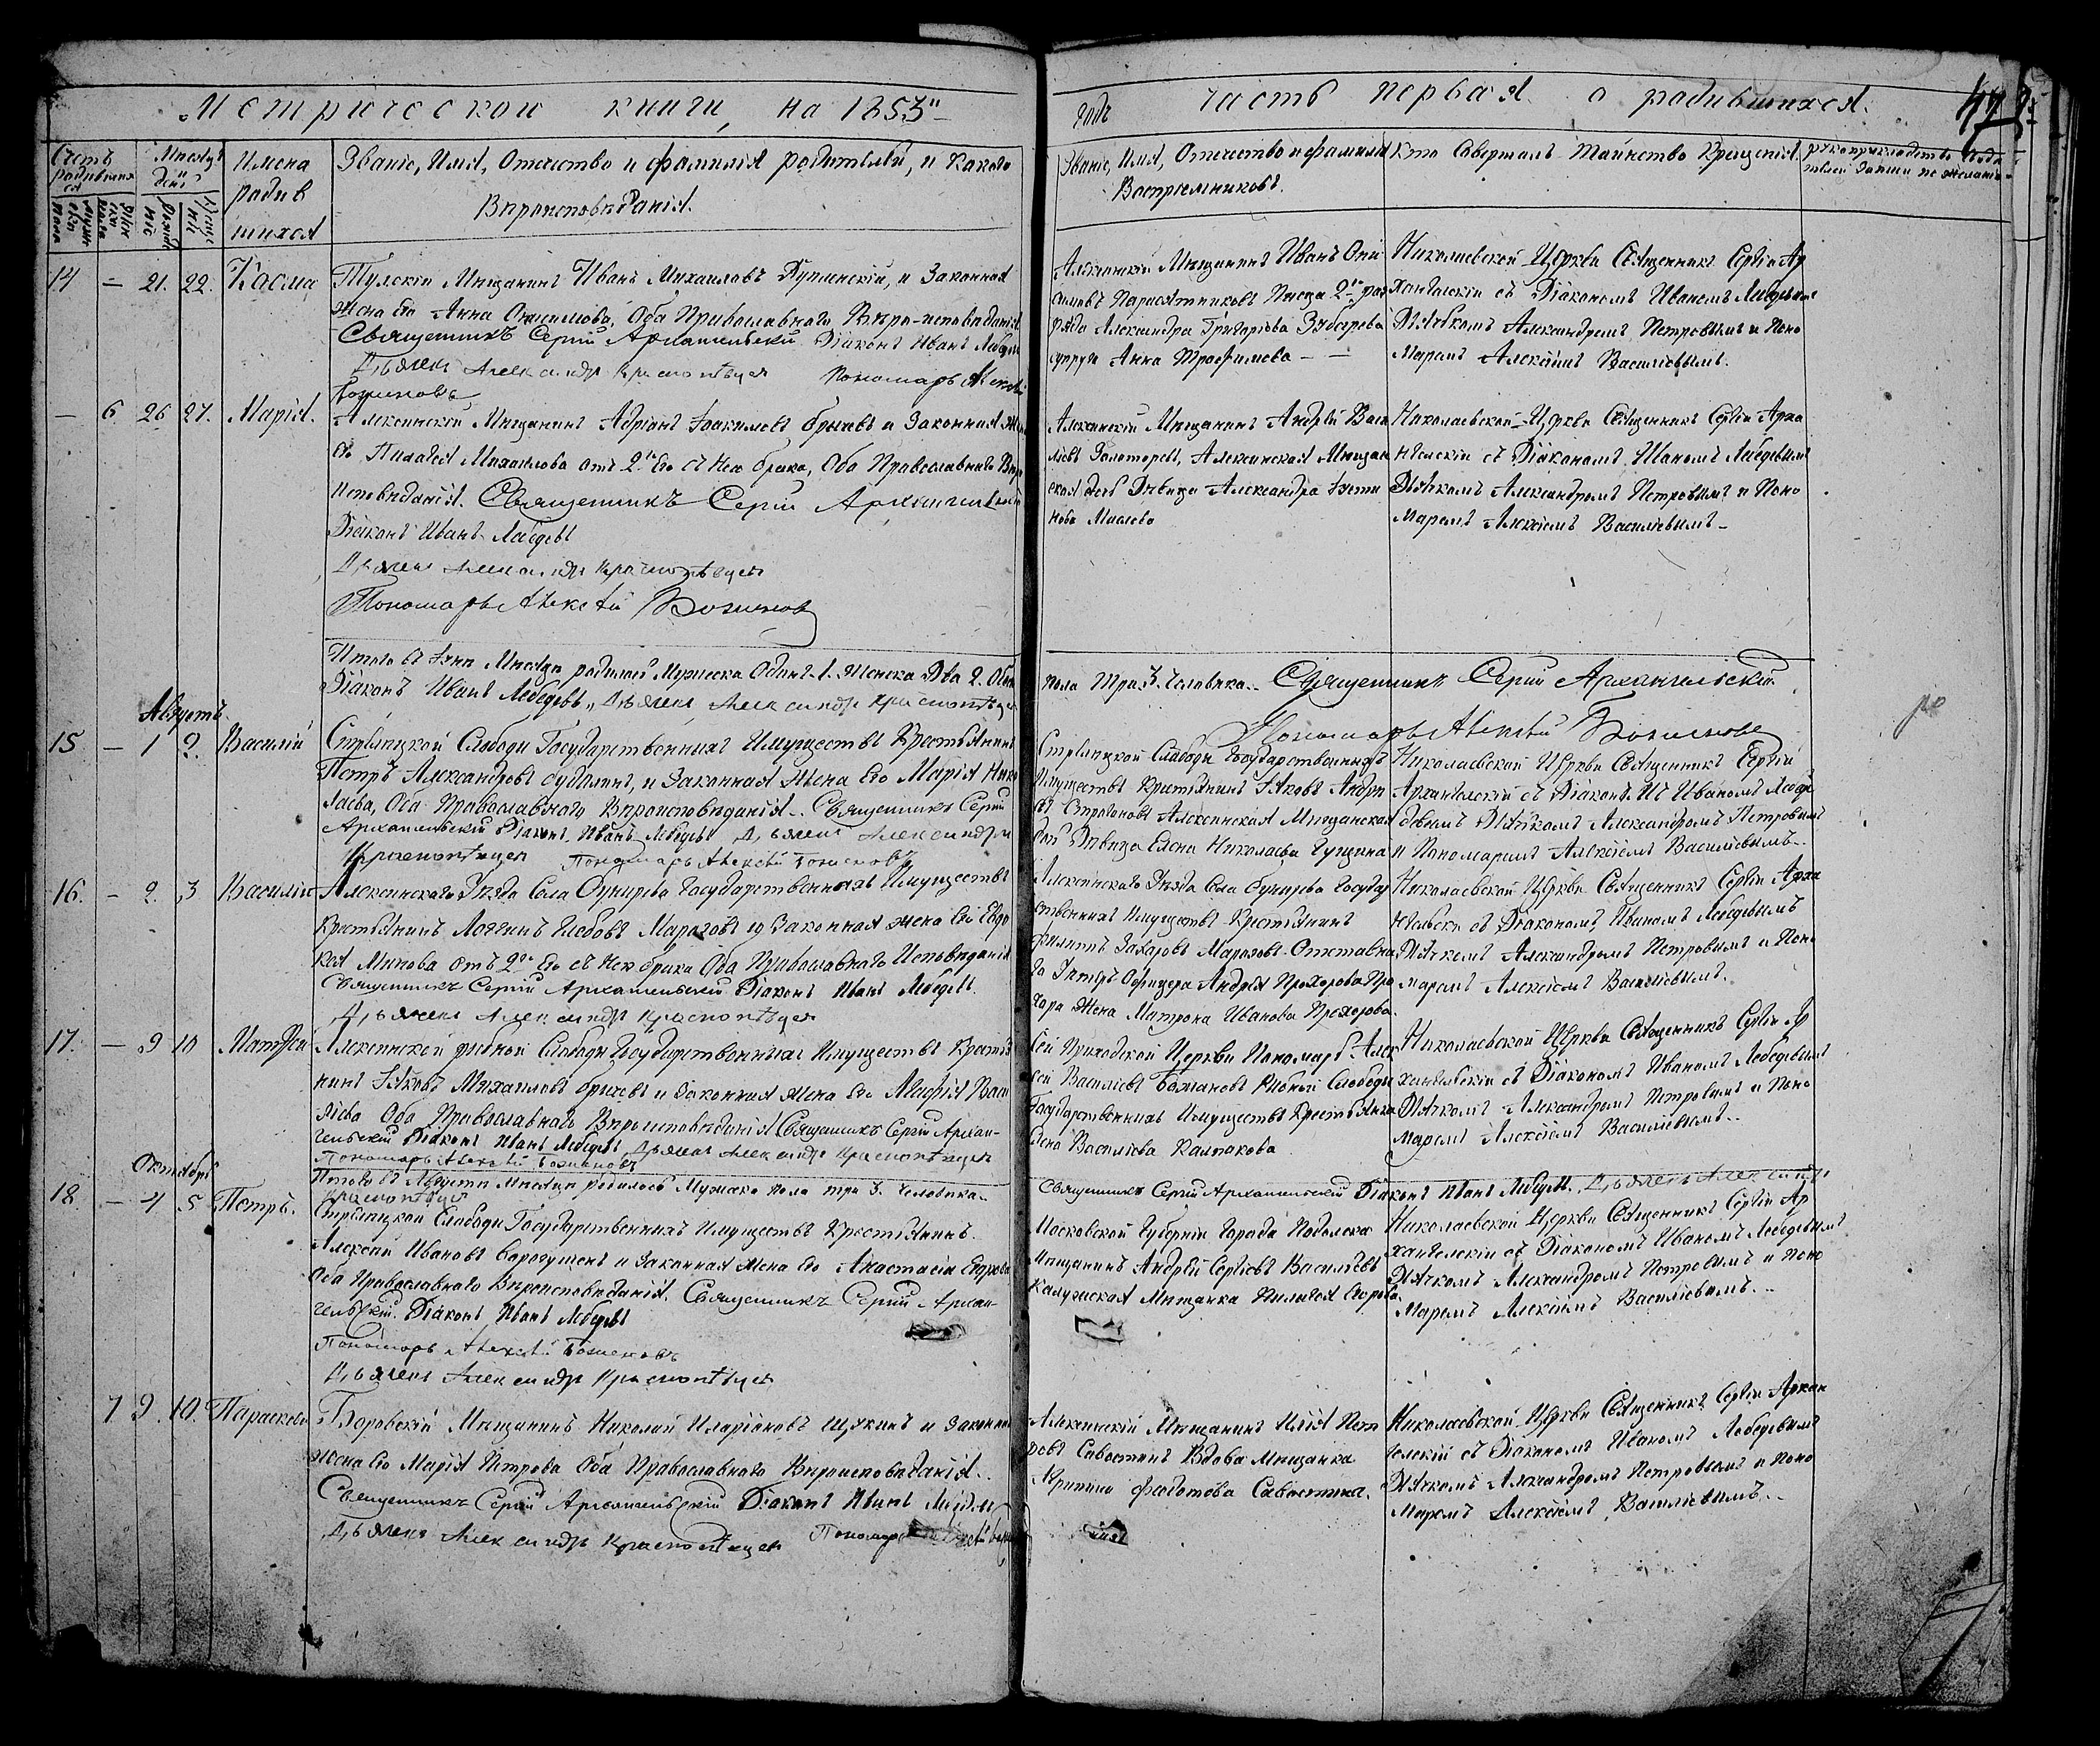 Метрической книги, на 1853й
годъ часть первая о родившихся.
Счетъ родившихся
Месяцъ и день
Имена родившихся
Званіе, Имя, Отчество и фамилія родителей, и какого
Вѣроисповѣданія.
Званіе, Имя, Отчество и фамилія
Воспріемниковъ.
Кто Совершалъ Таинство Крещенія.
14 — 21. 22. Касма
Тульскій Мѣщанинъ Иванъ Михаиловъ и Законная
жена его Анна Онисимова, Оба Православнаго Вѣро-исповѣданія
Священникъ Сергій Архангельскій Діаконъ Иванъ Лебедевъ
Дьячекъ Александръ Красноцвѣтовъ Пономарь Алексѣй
Алексинскій Мѣщанинъ Иванъ Они
симовъ
ряда Александра Григорьева
супруга Анна Трофимова — —
Николаевской Церкви Священникъ Сергій Ар
хангельскій съ Діакономъ Иваномъ Лебедевымъ
Дьячкомъ Александромъ Петровымъ и Поно
маремъ Алексѣемъ Васильевымъ.
— 6. 26 27. Марія.
Алексинскій Мѣщанинъ Адріанъ Іоакимовъ и Законная жена
его Пелагея Михаилова отъ 2го его съ нею брака, Оба Православнаго Вѣро
исповѣданія. Священникъ Сергій Архангельскій
Діаконъ Иванъ Лебедевъ
Дьячекъ Александръ
Пономарь Алексѣй
Алексинскій Мѣщанинъ Андрей Васи
льевъ Золоторевъ, Алексинская Мѣщан
ская дочь Дѣвица Александра
Николаевской Церкви Священникъ Сергій Арха
нгельскій съ Діакономъ Иваномъ Лебедевымъ
Дьячкомъ Александромъ Петровымъ и Поно
маремъ Алексѣемъ Васильевымъ —
Итого въ Мѣсяцѣ родилось Мужеска Одинъ 1. Женска Два 2. Обоего
пола Три 3. Человѣка. Священникъ Сергій Архангельскій
Діаконъ Иванъ Лебедевъ, Дьячекъ Александръ
Пономарь Алексѣй
Августъ
15 — 1 2. Василій
Стрѣлецкой Слободы Государственныхъ Имуществъ Крестьянинъ
Петръ Александровъ и Законная жена его Марія Нико
лаева, Оба Православнаго Вѣроисповѣданія. Священникъ Сергій
Архангельскій Діаконъ Иванъ Лебедевъ Дьячекъ Александръ
Пономарь Алексѣй
Стрѣлецкой Слободы Государственныхъ
Имуществъ Крестьянинъ Іаковъ Андре
евъ Строгановъ Алексинская Мѣщанская
дочь Дѣвица Елена Николаева
Николаевской Церкви Священникъ Сергій
Архангельскій съ Діакономъ Иваномъ Лебе
девымъ Дьячкомъ Александромъ Петровымъ
и Пономаремъ Алексѣемъ Васильевымъ.
16. — 2. 3 Василій
Алексинскаго Уѣзда Села Бунырева Государственныхъ Имуществъ
Крестьянинъ Логгинъ Глебовъ Морозовъ и Законная жена его Евдо
кея Минова отъ 2го его съ нею брака Оба Православнаго Исповѣданія
Священникъ Сергій Архангельскій Діаконъ Иванъ Лебедевъ.
Дьячекъ Александръ
Алексинскаго Уѣзда Села Бунырева Государ
ственныхъ Имуществъ Крестьянинъ
Филиппъ Захаровъ Морозовъ. Отставна
го Унтеръ Офицера Андрея Прохорова Про
хора жена Матрона Иванова Прохорова.
Николаевской Церкви Священникъ Сергій Арха
нгельскій съ Діакономъ Иваномъ Лебедевымъ
Дьячкомъ Александромъ Петровымъ и Поно
маремъ Алексѣемъ Васильевымъ.
17. — 9 10 Матѳей
Алексинской рыбной Слободы Государственныхъ Имуществъ Крестья
нинъ Іаковъ Михаиловъ и Законная жена его Марія Васи
льева Оба Православнаго Вѣроисповѣданія Священникъ Сергій Архан-
гельскій Діаконъ Иванъ Лебедевъ Дьячекъ Александръ
Пономарь Алексѣй
Сей Приходской Церкви Пономарь Алек
сей Васильевъ Рыбной Слободы
Государственныхъ Имуществъ Крестьянка
Елена Васильева Колпакова
Николаевской Церкви Священникъ Сергій Ар
хангельскій съ Діакономъ Иваномъ Лебедевымъ
Дьячкомъ Александромъ Петровымъ и Поно
маремъ Алексѣемъ Васильевымъ.
Итого въ Августѣ Мѣсяцѣ родилось Мужеска пола три 3. человѣка.
Священникъ Сергій Архангельскій Діаконъ Иванъ Лебедевъ. Дьячекъ Александръ
Октябрь
18. — 4 5 Петръ.
Стрѣлецкой Слободы Государственныхъ Имуществъ Крестьянинъ
Алексѣй Ивановъ и Законная жена его Анастасія Егорова
Оба Православнаго Вѣроисповѣданія. Священникъ Сергій Архан-
гельскій. Діаконъ Иванъ Лебедевъ
Пономарь Алексѣй
Дьячекъ Александръ
Московской Губерніи Города Подольска
Мѣщанинъ Андрей Сергѣевъ Васильевъ
Калужская Мѣщанка Пелагея Егорова.
Николаевской Церкви Священникъ Сергій Ар
хангельскій съ Діакономъ Иваномъ Лебедевымъ
Дьячкомъ Александромъ Петровымъ и Поно
маремъ Алексѣемъ Васильевымъ.
7 9. 10. Параскева
Боровскій Мѣщанинъ Николай Иларіоновъ Щукинъ и Законная
жена его Марія Петрова Оба Православнаго Вѣроисповѣданія.
Священникъ Сергій Архангельскій Діаконъ Иванъ Лебедевъ
Дьячекъ Александръ Пономарь
Алексинскій Мѣщанинъ Илія Пет
ровъ Савостинъ Вдова Мѣщанка
Федотова Савостина.
Николаевской Церкви Священникъ Сергій Архан
гельскій съ Діакономъ Иваномъ Лебедевымъ
Дьячкомъ Александромъ Петровымъ и Поно
маремъ Алексѣемъ Васильевымъ.